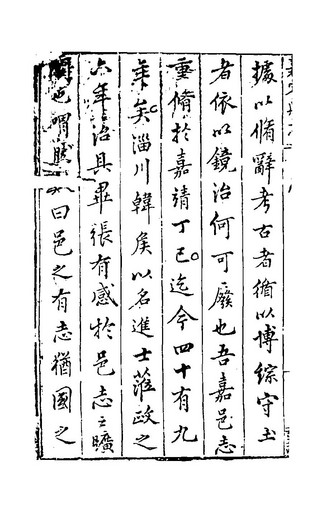 據以脩辭考古者循以博綜守土
者依以鏡治何可廢也吾嘉邑志
重脩於嘉靖丁巳迄今四十有九
年矣淄川韓矦以名進士蒞政之
六年治具畢張有感於邑志之曠
也謂 曰邑之有志猶國之